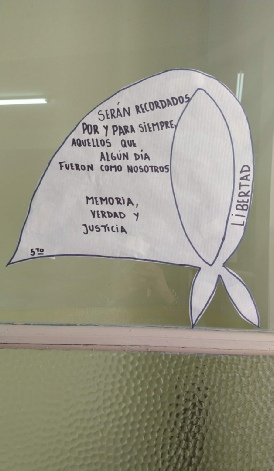 SERÁN RECORDADOS
POR Y PARA SIEMPRE,
AQUELLOS QUE
ALGÚN DÍA
FUERON COMO NOSOTROS
MEMORIA,
VERDAD Y
JUSTICIA
LIBERTAD
5TO